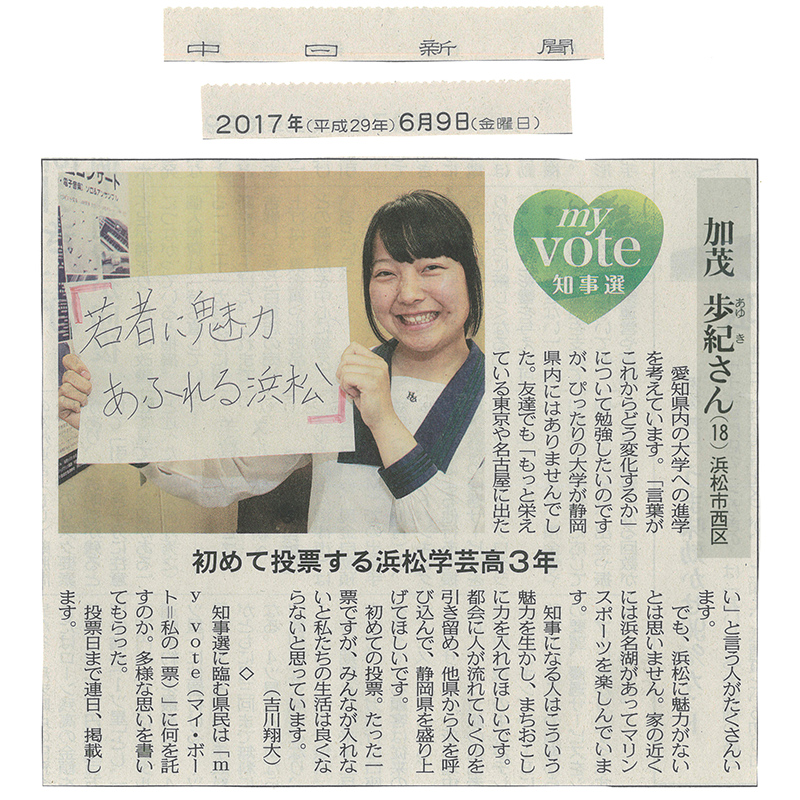 中日新聞
2017年(平成29年)6月9日(金曜日)
ンサート
my
vote
知事選
加茂 歩紀さん(18) 浜松市西区
あゆき
「若者に魅力
あふれる浜松」
初めて投票する浜松学芸高3年
愛知県内の大学への進学
を考えています。「言葉が
これからどう変化するか」
について勉強したいのです
が、ぴったりの大学が静岡
県内にはありませんでし
た。友達でも「もっと栄え
ている東京や名古屋に出た
い」と言う人がたくさんい
ます。
でも、浜松に魅力がない
とは思いません。家の近く
には浜名湖があってマリン
スポーツを楽しんでいま
す。
知事になる人はこういう
魅力を生かし、まちおこし
に力を入れてほしいです。
都会に人が流れていくのを
引き留め、他県から人を呼
び込んで、静岡県を盛り上
げてほしいです。
初めての投票。たった一
票ですが、みんなが入れな
いと私たちの生活は良くな
らないと思っています。
(吉川翔大)
◇
知事選に臨む県民は「m
y vote(マイ・ボー
ト=私の一票)」に何を託
すのか。多様な思いを書い
てもらった。
投票日まで連日、掲載し
ます。